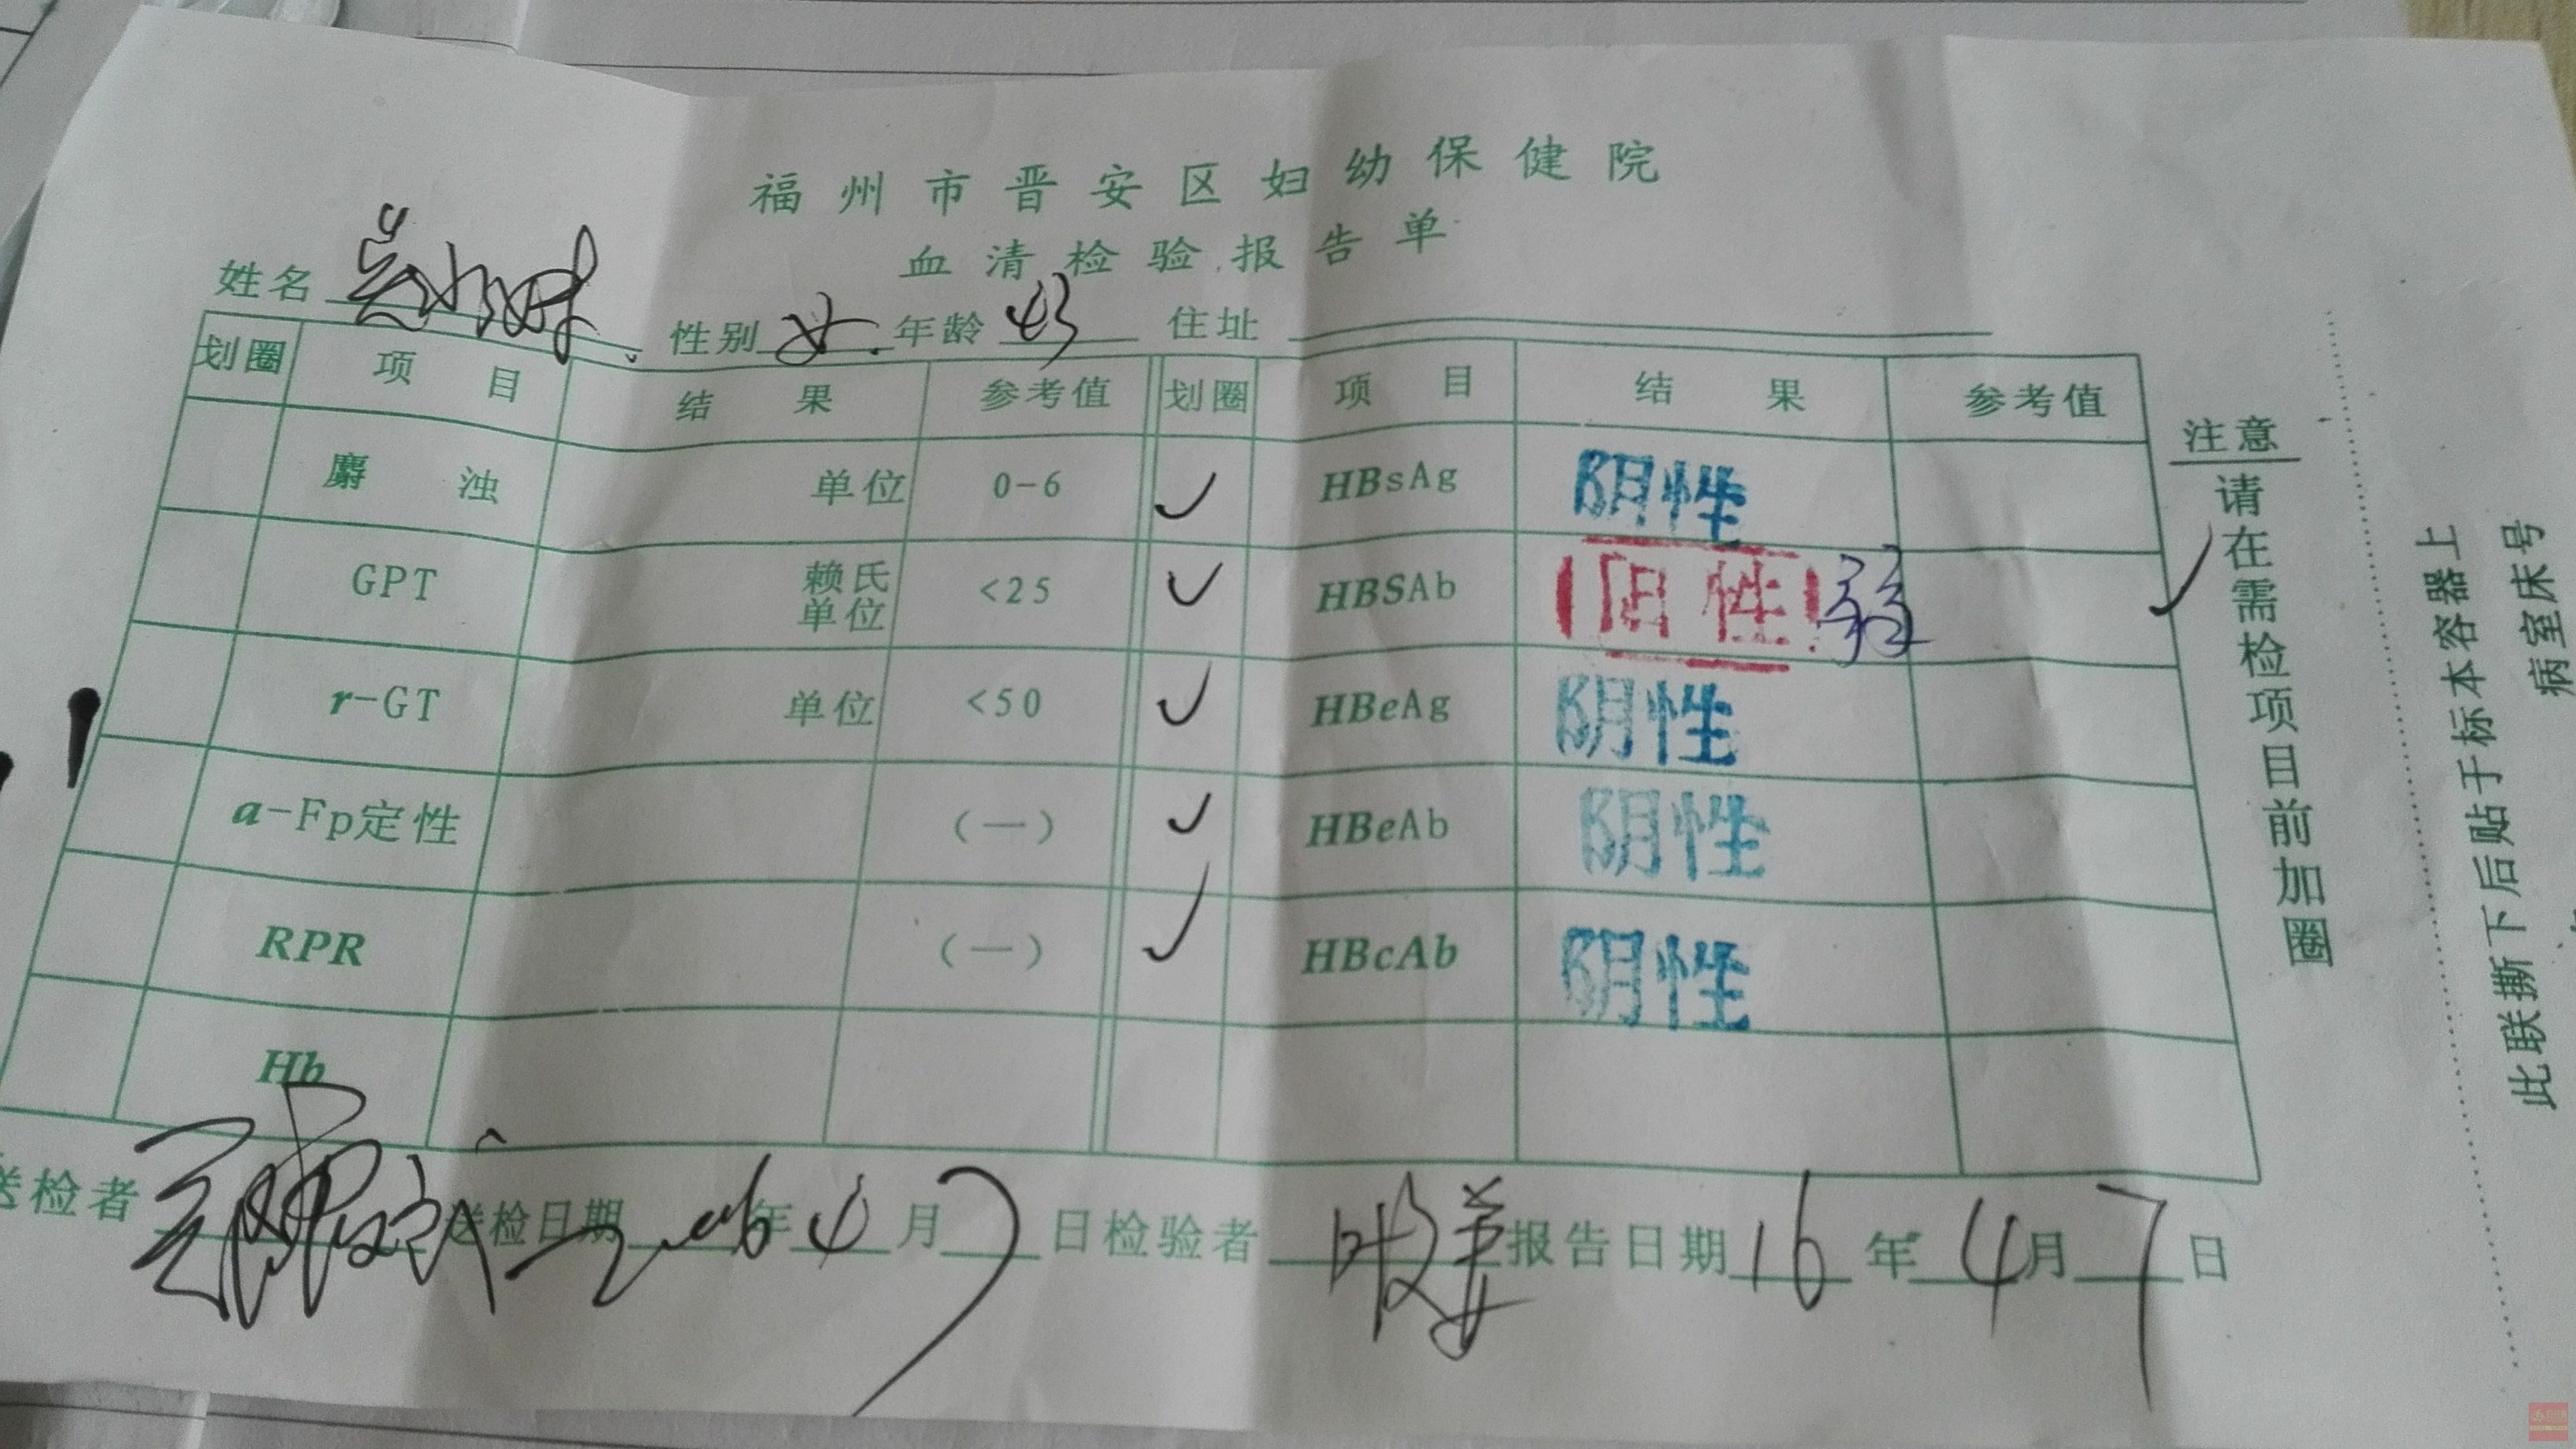 福州市晋安区妇幼保健院
血清检验报告单
姓名 性别 女 年龄 43 住址
划圈 项目 结果 参考值 划圈 项目 结果 参考值
麝浊 单位 0-6 ✓ HBsAg 阴性
GPT 赖氏单位 <25 ✓ HBSAb 阳性 弱
r-GT 单位 <50 ✓ HBeAg 阴性
a-Fp定性 (—) ✓ HBeAb 阴性
RPR (—) ✓ HBcAb 阴性
Hb
送检者 送检日期 2016年4月7日 检验者 报告日期 16年4月7日
注意
请在需检项目前加圈
此联撕下后贴于标本容器上
病室床号